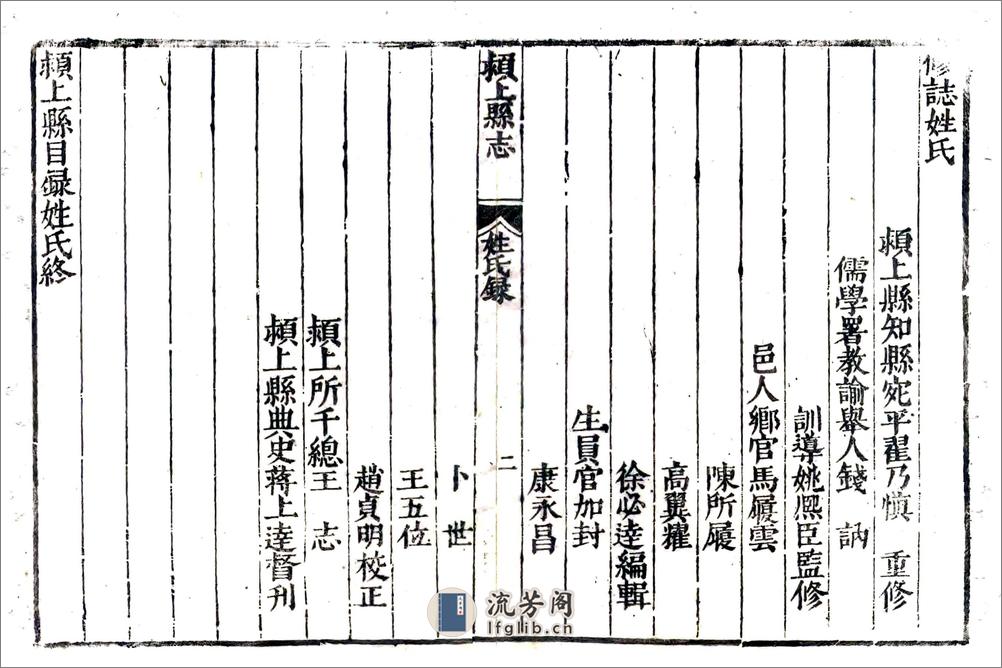 修誌姓氏
潁上縣知縣宛平翟乃慎 重修
儒學署教諭舉人錢 訥
訓導姚熙臣監修
邑人鄉官馬履雲
陳所履
高翼耀
徐必達編輯
生員官加封
康永昌
潁上縣志
姓氏録
二
卜世
王五位
趙貞明校正
潁上所千總王 志
潁上縣典史蔣上達督刋
潁上縣目録姓氏終
流芳阁
lfglib.cn